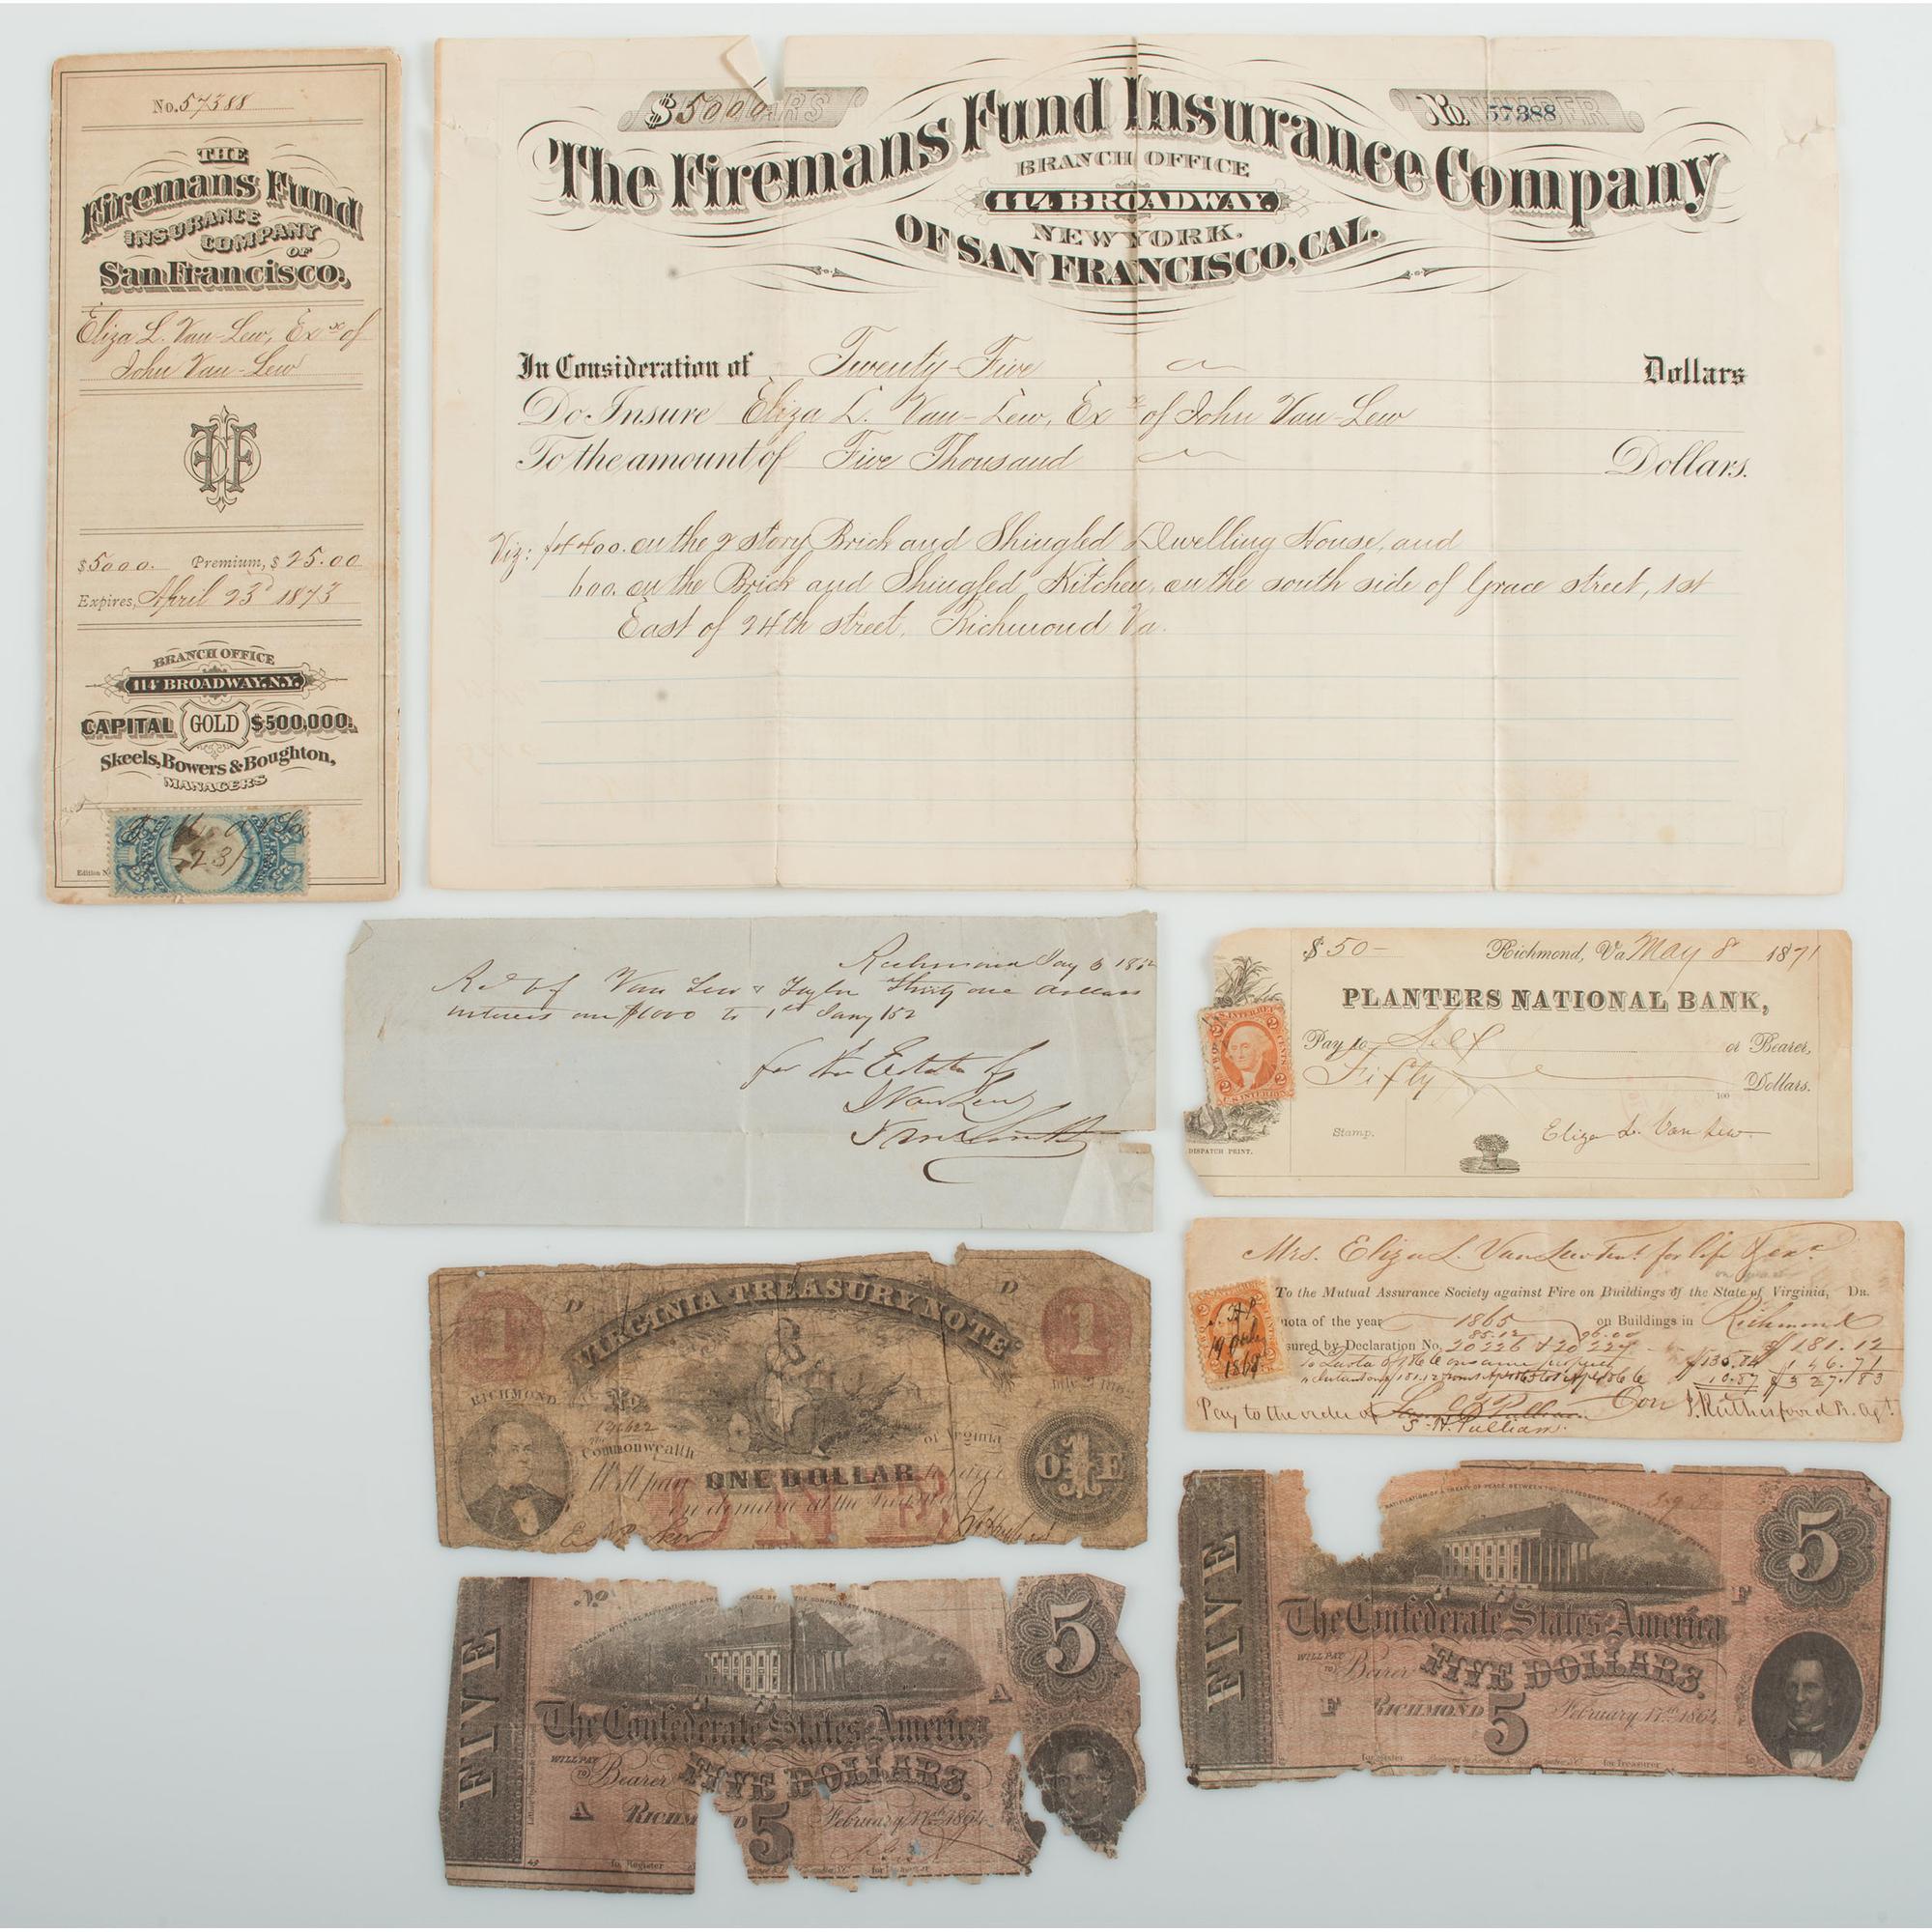 No. 57388
THE
Firemans Fund
INSURANCE
COMPANY
OF
San Francisco.
Eliza L. Van-Lew, Exx of
John Van-Lew
$5000. Premium, $25.00
Expires, April 23d 1873
BRANCH OFFICE
114 BROADWAY. N.Y.
CAPITAL GOLD $500,000.
Skeels, Bowers & Boughton,
MANAGERS
Edition N
$5000 No. 57388
The Firemans Fund Insurance Company
BRANCH OFFICE
114 BROADWAY.
NEW YORK.
OF SAN FRANCISCO, CAL.
In Consideration of Twenty-Five Dollars
Do Insure Eliza L. Van-Lew, Exx of John Van-Lew
To the amount of Five Thousand Dollars.
Viz: $4400. on the 2 story Brick and Shingled Dwelling House, and
600. on the Brick and Shingled Kitchen, on the south side of Grace street, 1st
East of 24th street, Richmond Va.
Richmond Jay 6 1852
Recd of Van Lew & Taylor Thirty one dollars
interest on $1000 to 1st Jany 152
for the Estate of
J Van Lew
$50- Richmond, Va May 8 1871
PLANTERS NATIONAL BANK,
Pay to Self or Bearer,
Fifty Dollars.
100
Stamp. Eliza L. Van Lew
DISPATCH PRINT.
U.S. INTER. REV.
2 2
Mrs. Eliza L. Van Lew Tent. for life & exx
To the Mutual Assurance Society against Fire on Buildings of the State of Virginia, Dr.
uota of the year 1865 on Buildings in Richmond
85.12 96.00
sured by Declaration No. 20226 & 20227 $181.12
To Quota of 1866 on same property $135.84 146.71
10.87 $327.83
Pay to the order of
S. H. Pulliam
J. Rutherfoord Pr. Agt.
VIRGINIA TREASURY NOTE
1 D D 1
RICHMOND No.
The Commonwealth of Virginia
Will pay ONE DOLLAR to bearer
on demand at the Treasury
ONE
O1E
FIVE
No
5
The Confederate States America
A
WILL PAY TO Bearer FIVE DOLLARS.
A RICHMOND 5 February 17th 1864
for Register for
FIVE
RATIFICATION OF A TREATY OF PEACE BETWEEN THE CONFEDERATE STATES
5
F
The Confederate States America
WILL PAY TO Bearer FIVE DOLLARS.
F RICHMOND 5 February 17th 1864
for Register for Treasurer